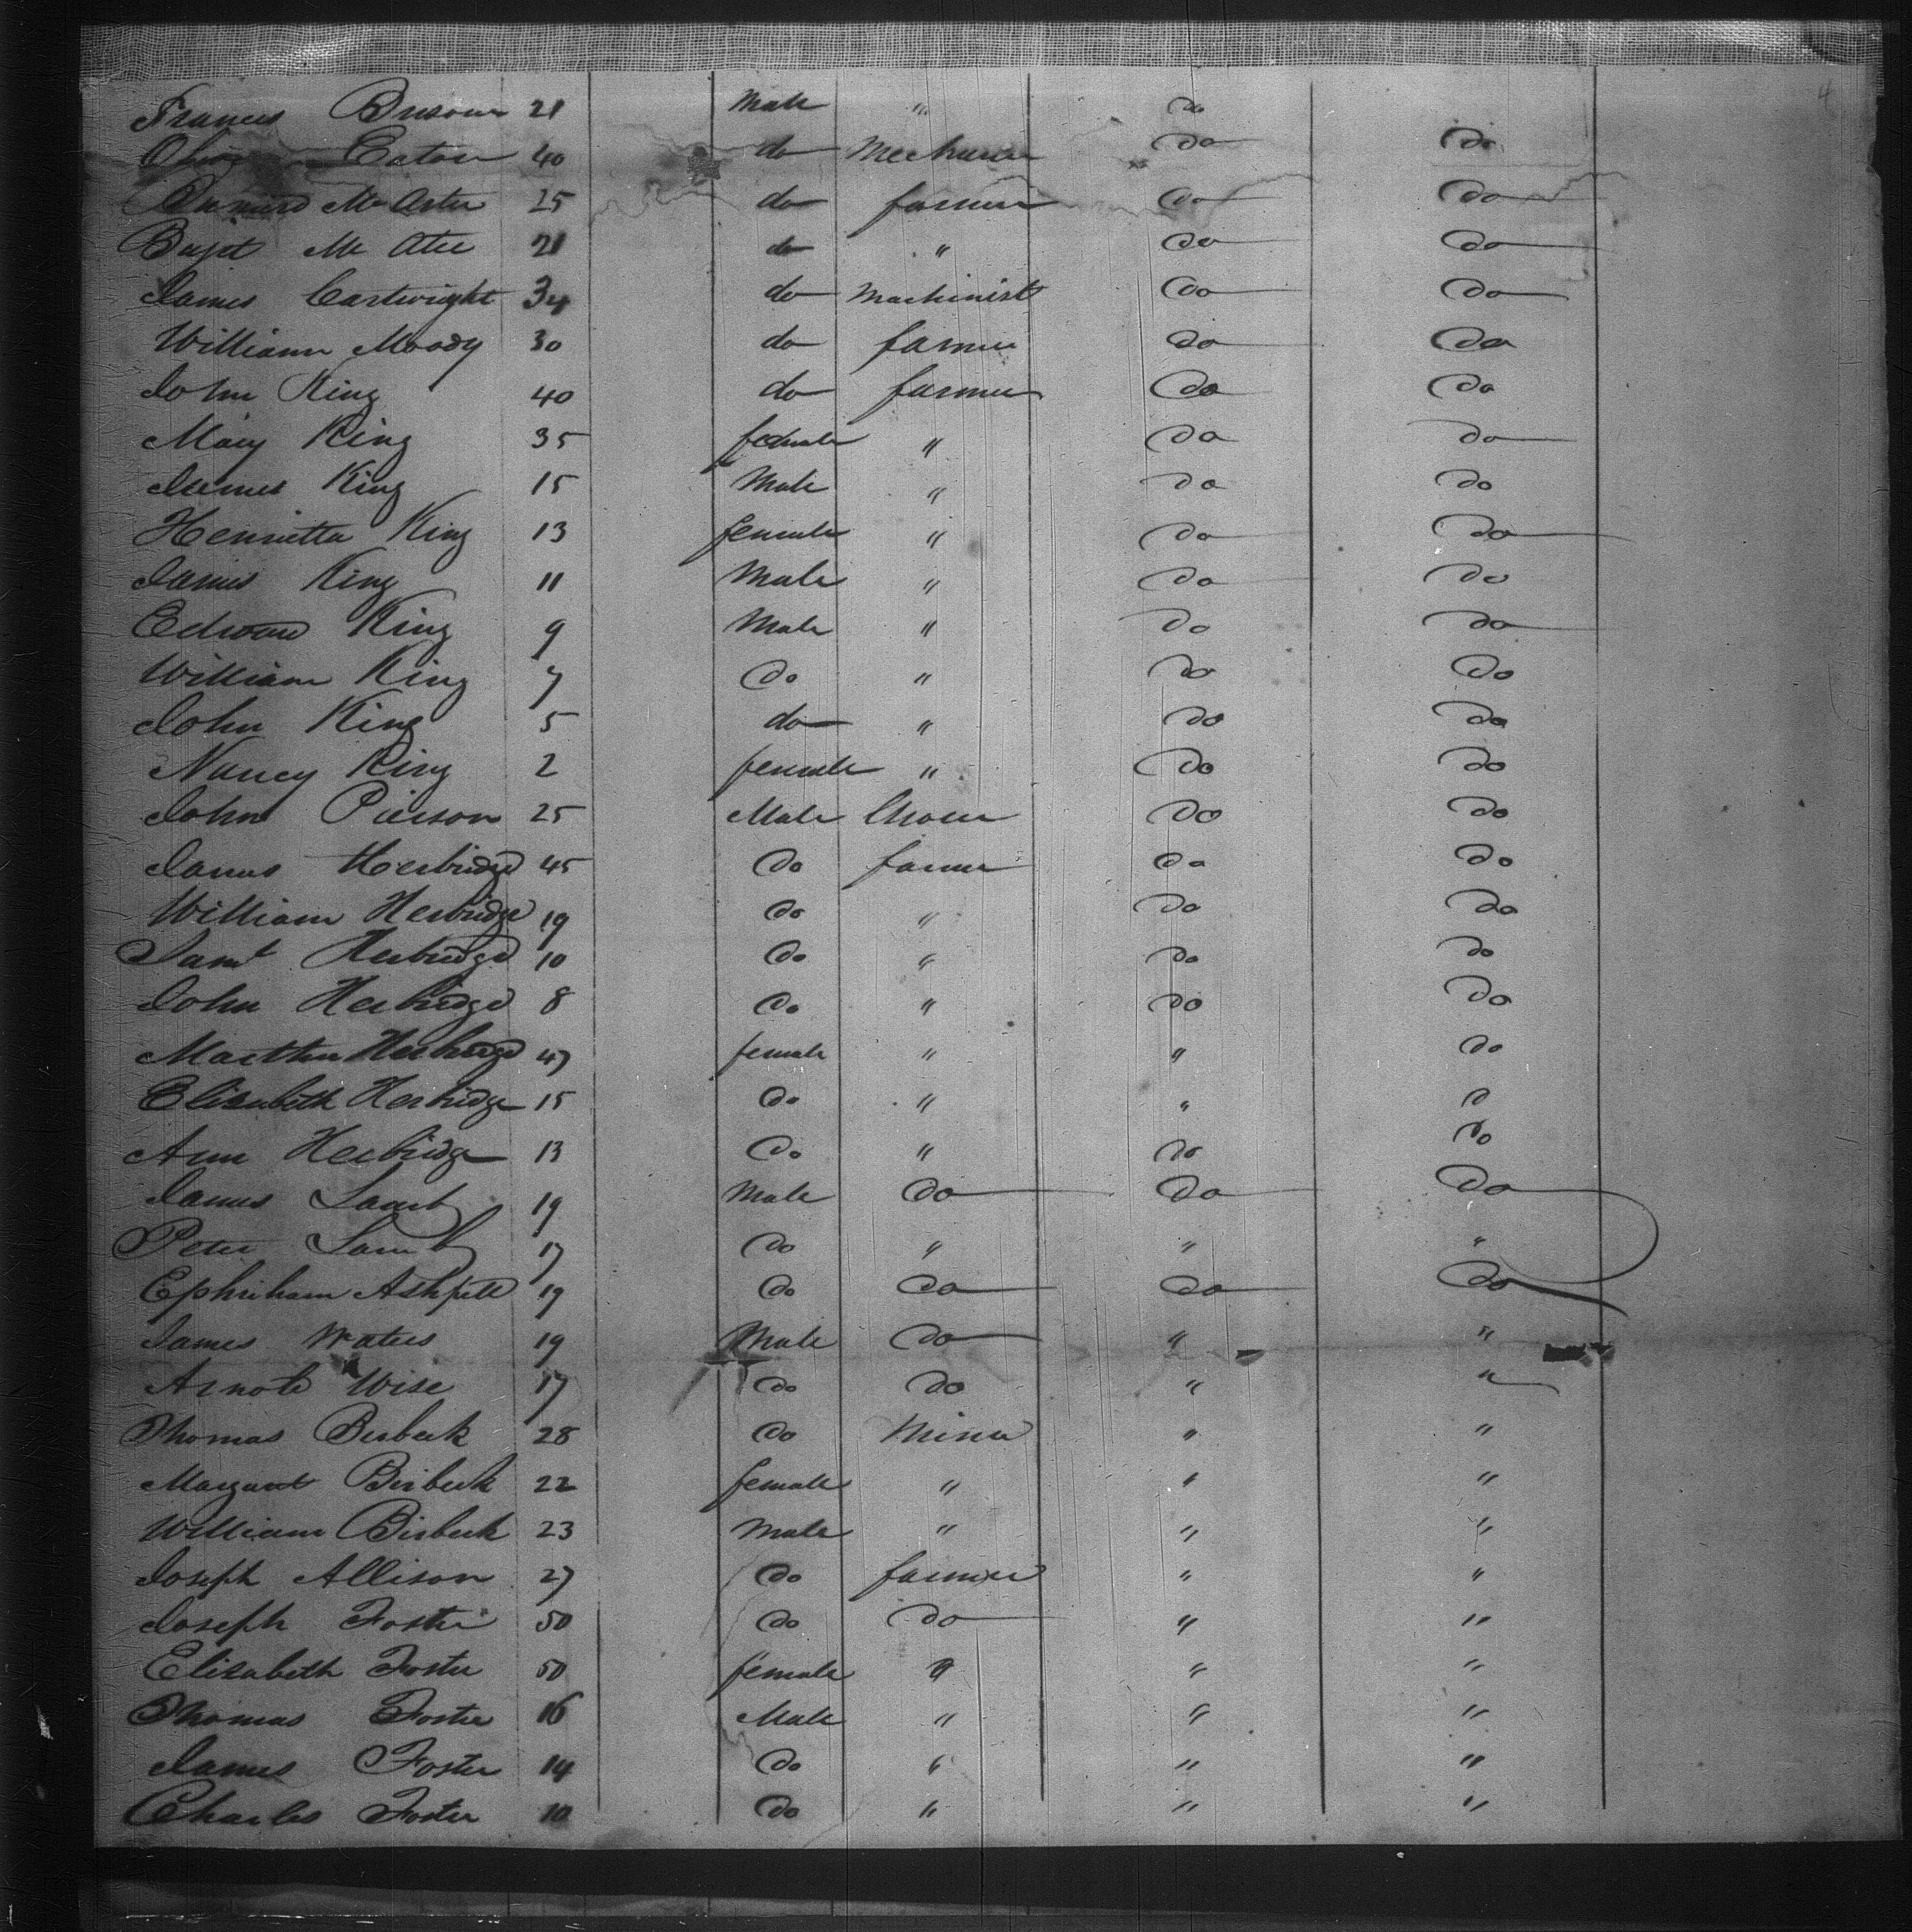 Francis 21 Male " do
Eaton 40 do Mechanic do do
25 do farmer do do
21 do " do do
James Cartwright 34 do Machinist do do
William Moody 30 do farmer do do
John King 40 do farmer do do
Mary King 35 female " do do
James King 15 Male " do do
Henrietta King 13 female " do do
James King 11 Male " do do
Edward King 9 Male " do do
William King 7 do " do do
John King 5 do " do do
Nancy King 2 female " do do
John Pierson 25 Male do do
James Herbridge 45 do farmer do do
William Herbridge 19 do " do do
Saml Herbridge 10 do " do do
John Herbridge 8 do " do do
Martha Herbridge 47 female " " do
Elisabeth Herbridge 15 do " " d
Ann Herbridge 13 do " do do
James Lamb 19 Male do do do
Peter Lamb 17 do " " "
Ephriham 19 do do do do
James Waters 19 Male do " "
Wise 17 do do " "
Thomas Birbeck 28 do Miner " "
Margaret Birbeck 22 female " " "
William Birbeck 23 Male " " "
Joseph Allison 27 do farmer " "
Joseph Foster 50 do do " "
Elisabeth Foster 50 female " " "
Thomas Foster 16 Male " " "
James Foster 14 do " " "
Charles Foster 10 do " " "
4